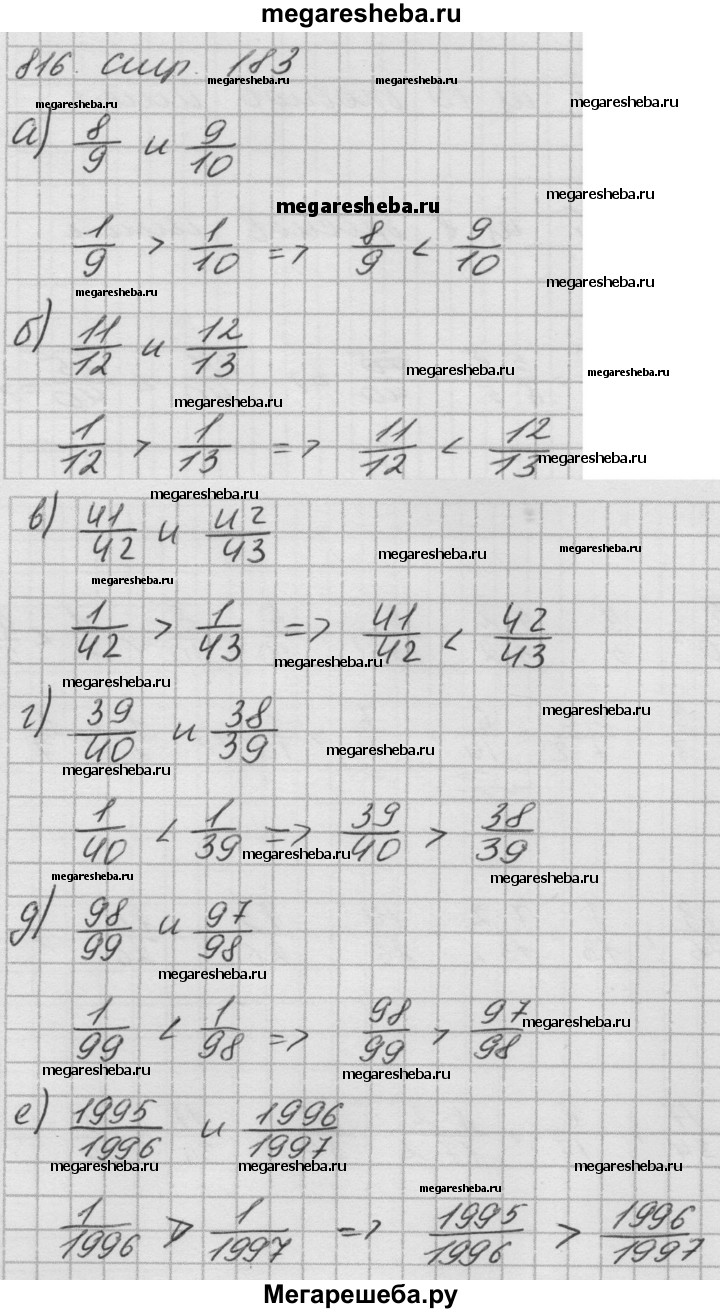 megaresheba.ru
816. стр. 183
megaresheba.ru megaresheba.ru
megaresheba.ru megaresheba.ru
а) 8/9 и 9/10
megaresheba.ru
megaresheba.ru
1/9 > 1/10 => 8/9 < 9/10
megaresheba.ru megaresheba.ru
б) 11/12 и 12/13
megaresheba.ru megaresheba.ru
megaresheba.ru
1/12 > 1/13 => 11/12 < 12/13
megaresheba.ru
megaresheba.ru
в) 41/42 и 42/43
megaresheba.ru megaresheba.ru
megaresheba.ru
1/42 > 1/43 => 41/42 < 42/43
megaresheba.ru
megaresheba.ru
г) 39/40 и 38/39
megaresheba.ru
megaresheba.ru
megaresheba.ru
1/40 < 1/39 => 39/40 > 38/39
megaresheba.ru
megaresheba.ru megaresheba.ru
д) 98/99 и 97/98
megaresheba.ru
1/99 < 1/98 => 98/99 > 97/98
megaresheba.ru
megaresheba.ru megaresheba.ru
е) 1995/1996 и 1996/1997
megaresheba.ru megaresheba.ru megaresheba.ru
megaresheba.ru
1/1996 > 1/1997 => 1995/1996 > 1996/1997
Мегарешеба.ру